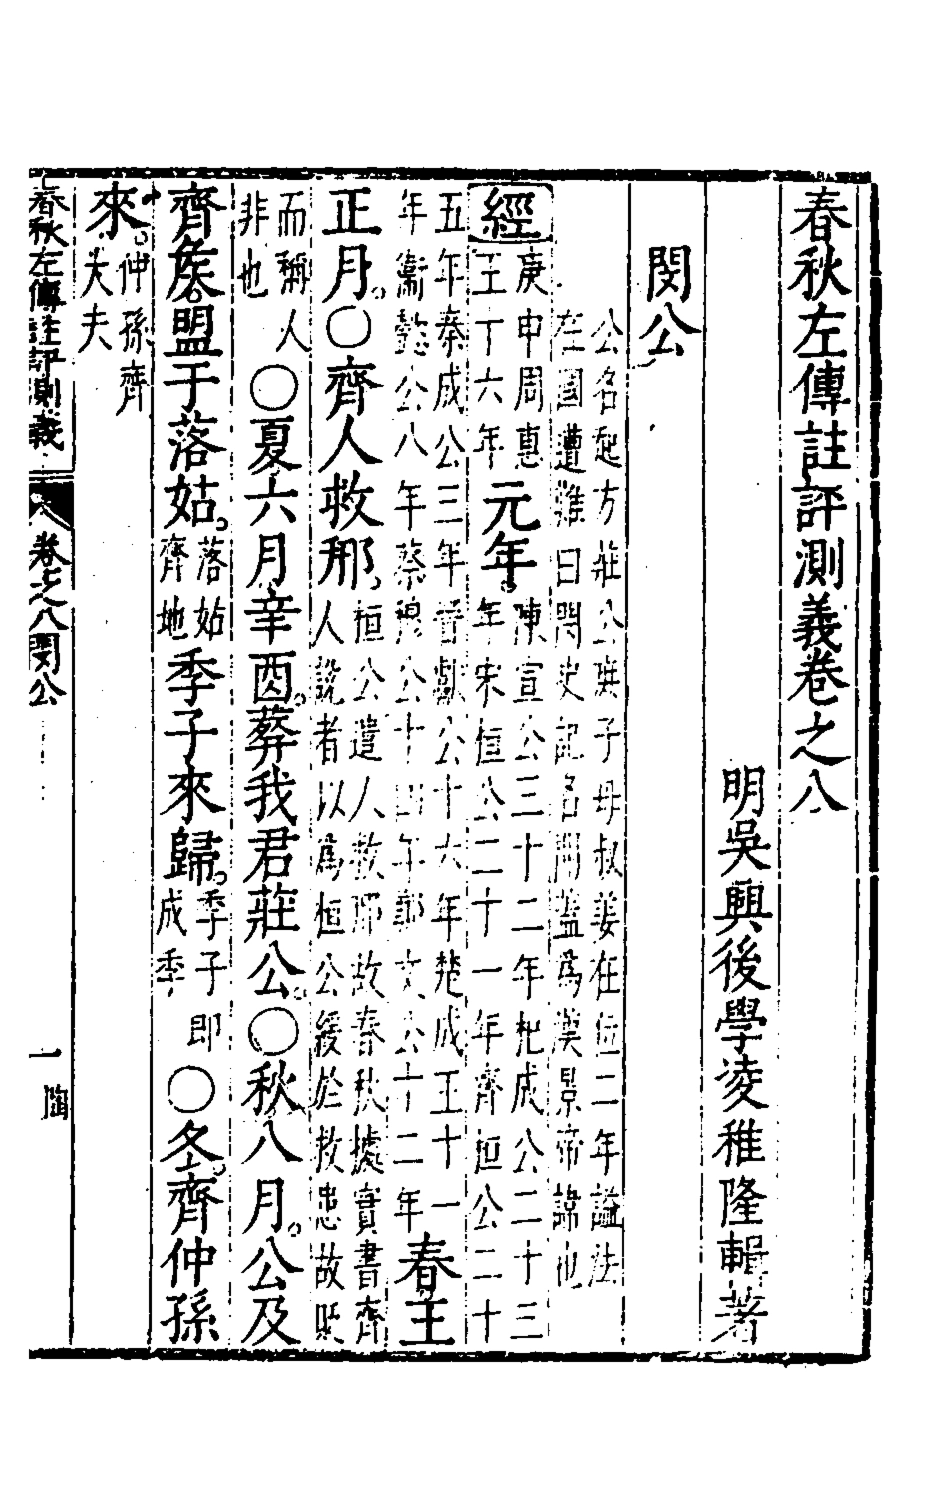 春秋左傳註評測義卷之八
明吳興後學凌稚隆輯著
閔公
公名啟方莊公庶子母叔姜在位二年謚法
在國遭難曰閔史記名開蓋為漢景帝諱也
經
庚申周惠
王十六年
元年。
陳宣公三十二年杞成公二十三
年宋桓公二十一年齊桓公二十
五年秦成公三年晉獻公十六年楚成王十一
年衛懿公八年蔡穆公十四年鄭文公十二年
春王
正月。○齊人救邢。
桓公遣人救邢故春秋據實書齊
人說者以為桓公緩於救患故貶
而稱人
非也
○夏六月辛酉。葬我君莊公。○秋八月。公及
齊矦盟于落姑。
落姑
齊地
季子來歸。
季子即
成季
○冬。齊仲孫
來。
仲孫齊
大夫
春秋左傳註評測義
卷之八閔公
一
陶